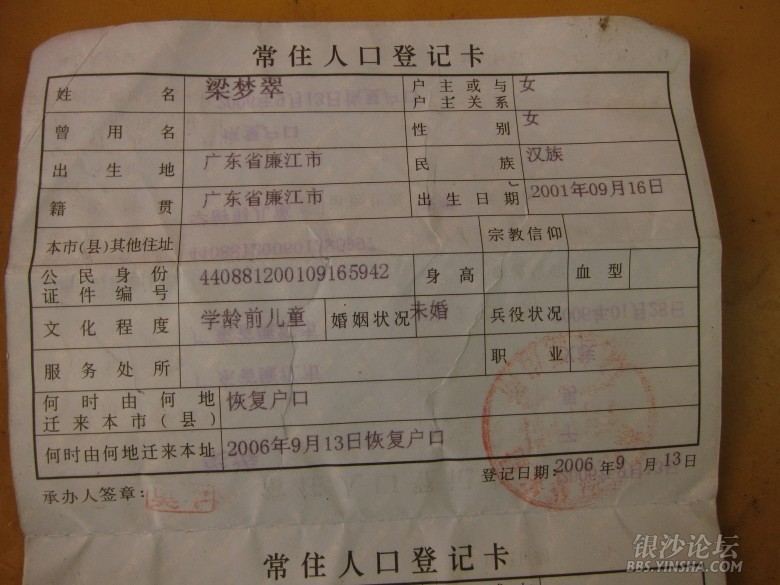 常住人口登记卡
姓名 梁梦翠 户主或与户主关系 女
曾用名 性别 女
出生地 广东省廉江市 民族 汉族
籍贯 广东省廉江市 出生日期 2001年09月16日
本市(县)其他住址 宗教信仰
公民身份证件编号 440881200109165942 身高 血型
文化程度 学龄前儿童 婚姻状况 未婚 兵役状况
服务处所 职业
何时由何地迁来本市(县) 恢复户口
何时由何地迁来本址 2006年9月13日恢复户口
登记日期:2006年9月13日
承办人签章:
常住人口登记卡
银沙论坛
BBS.YINSHA.COM